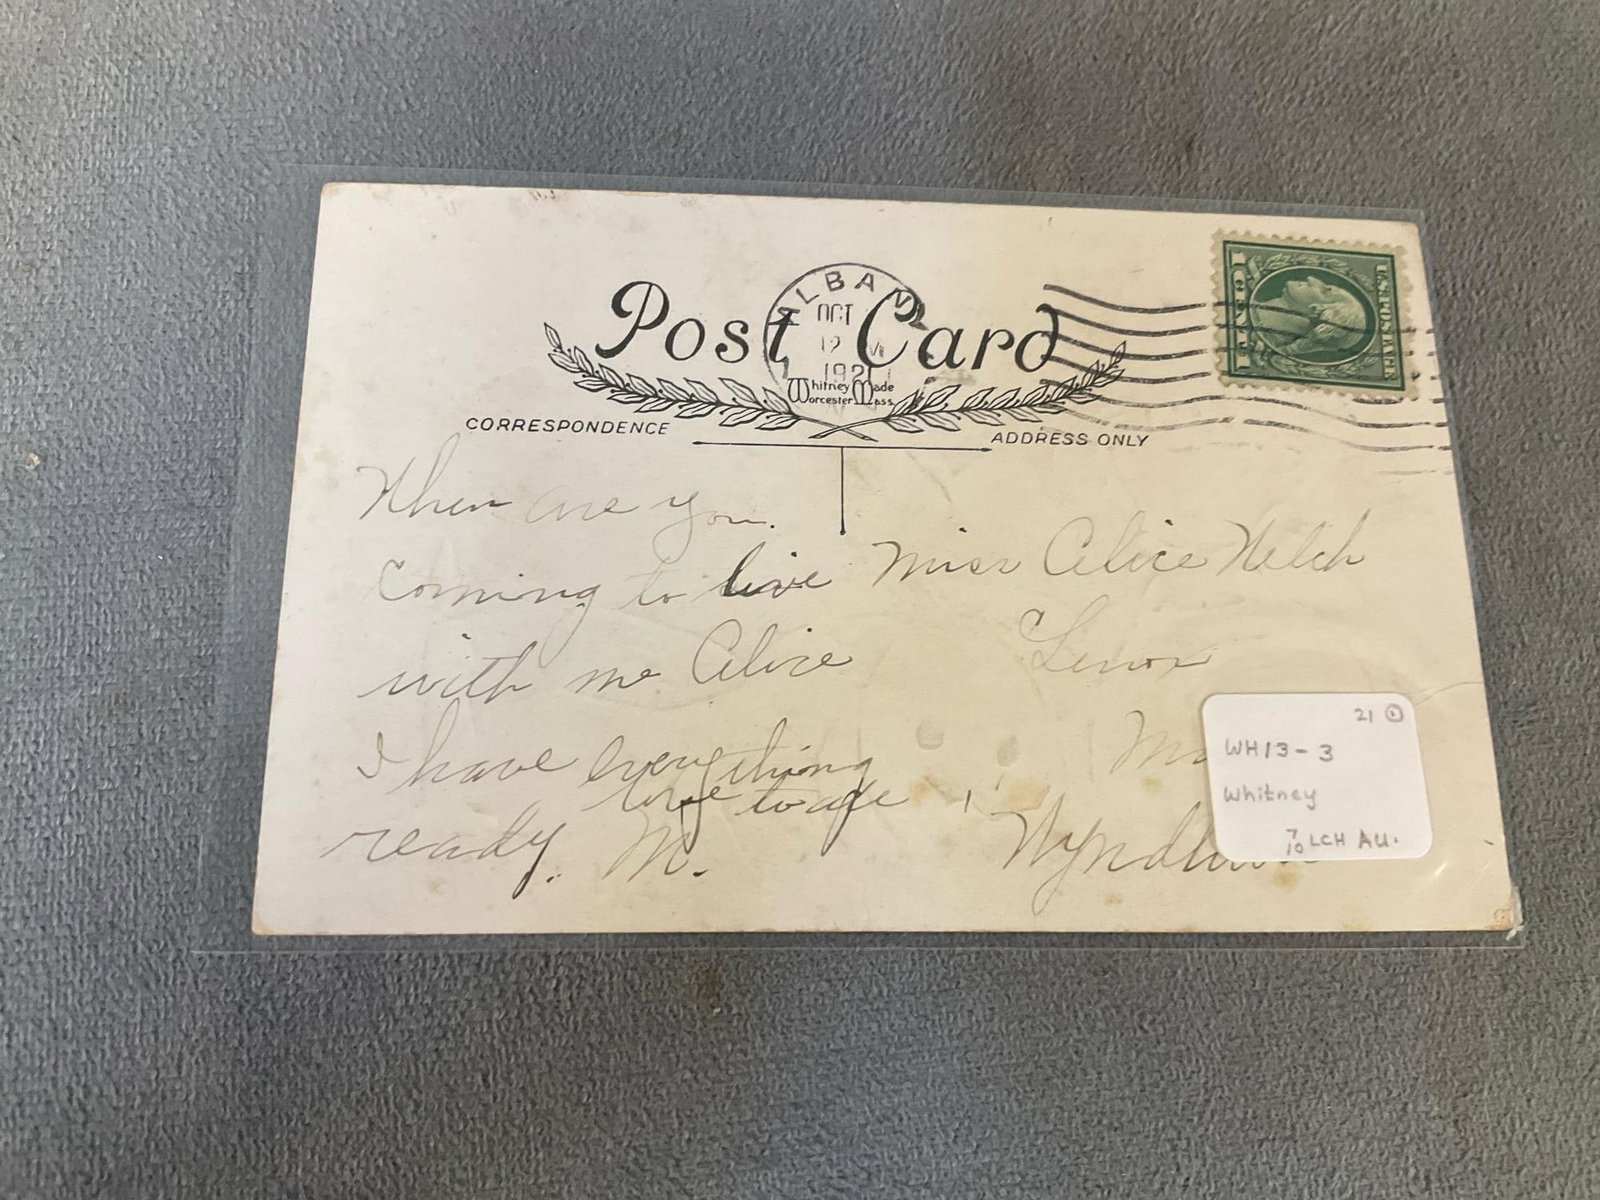 Post Card
ALBANY
OCT
12 M
192
Whitney Made
Worcester Mass.
U.S. POSTAGE
1 CENT 1
CORRESPONDENCE
ADDRESS ONLY
When are you
coming to live
with me Alice
I have everything
ready. M.
love to all
Miss Alice Welch
Lenox
Wyndhurst
21
WH13-3
Whitney
7/10 LCH AU.